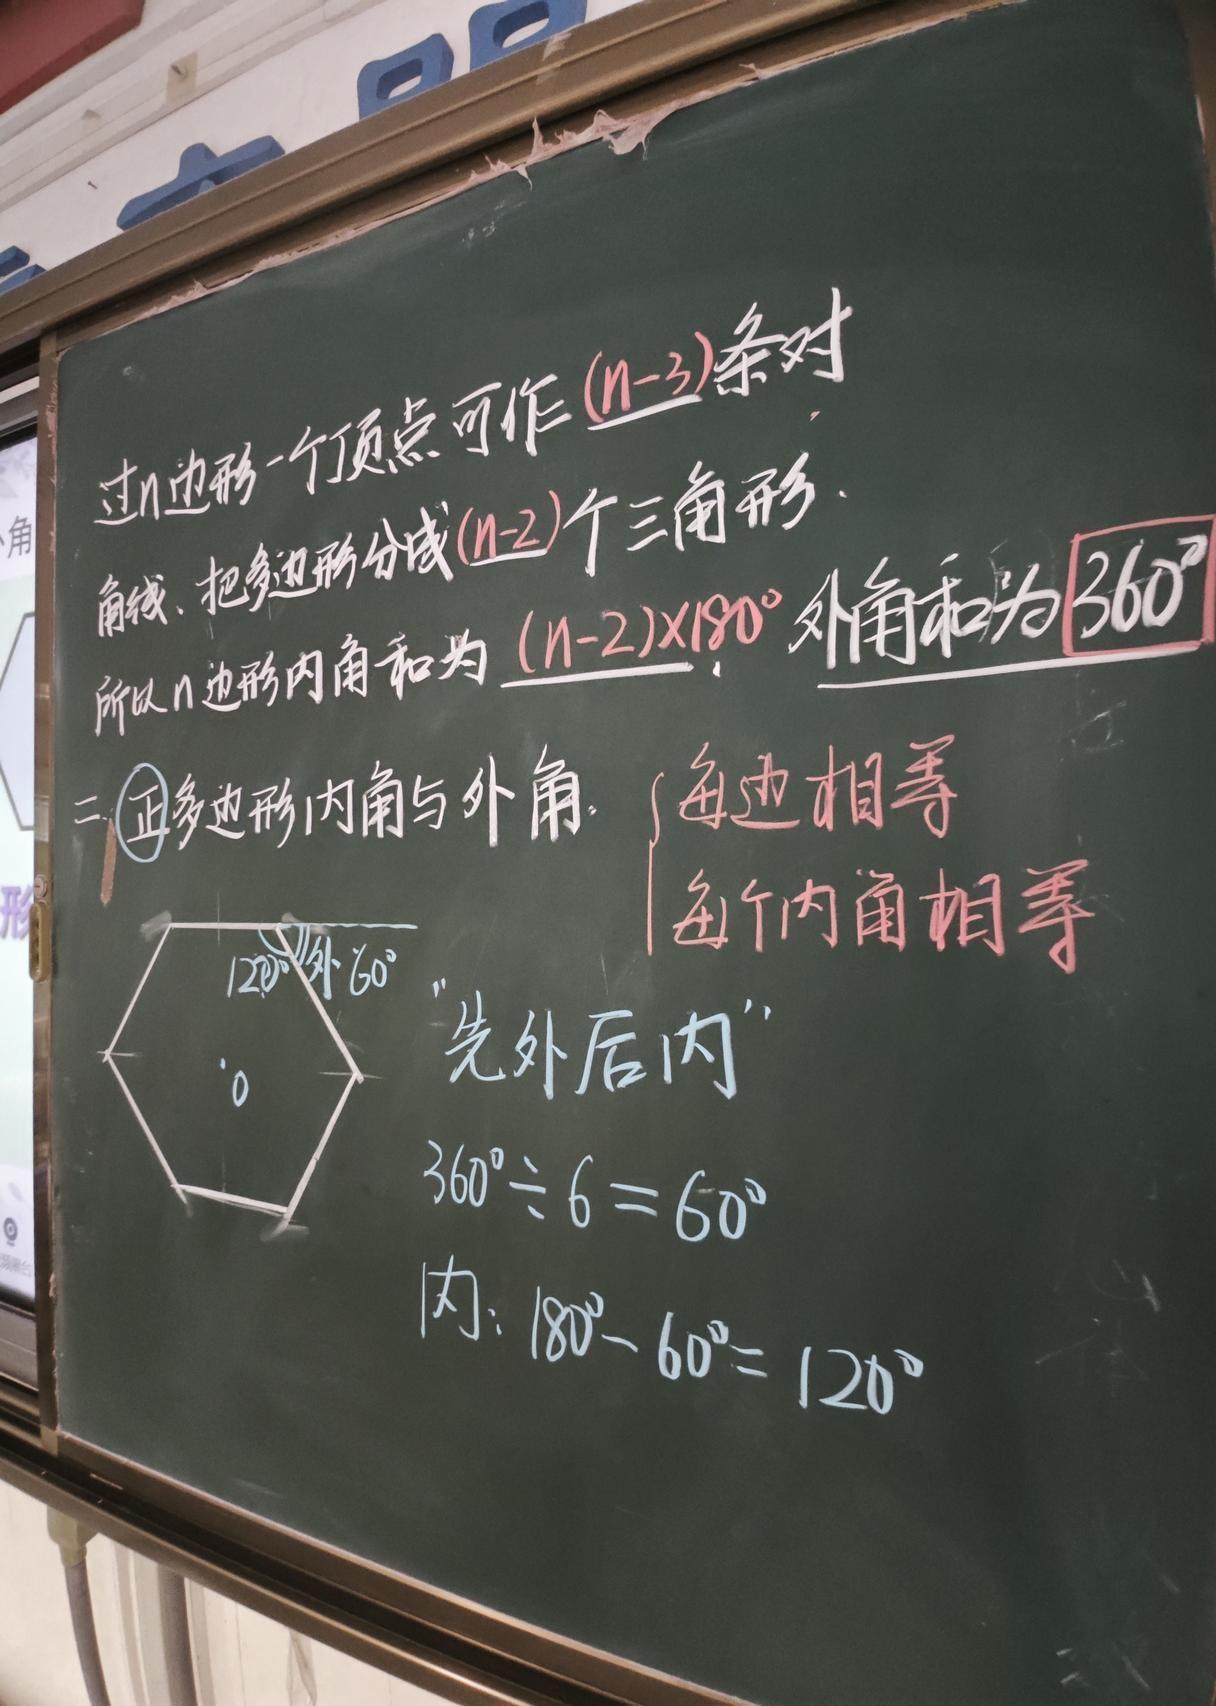 过n边形一个顶点可作(n-3)条对
角线、把多边形分成(n-2)个三角形.
所以n边形内角和为(n-2)×180° 外角和为360°
二.正多边形内角与外角. {每边相等
每个内角相等
120° 外 60°
O
"先外后内"
360°÷6=60°
内: 180°-60°=120°
角
形